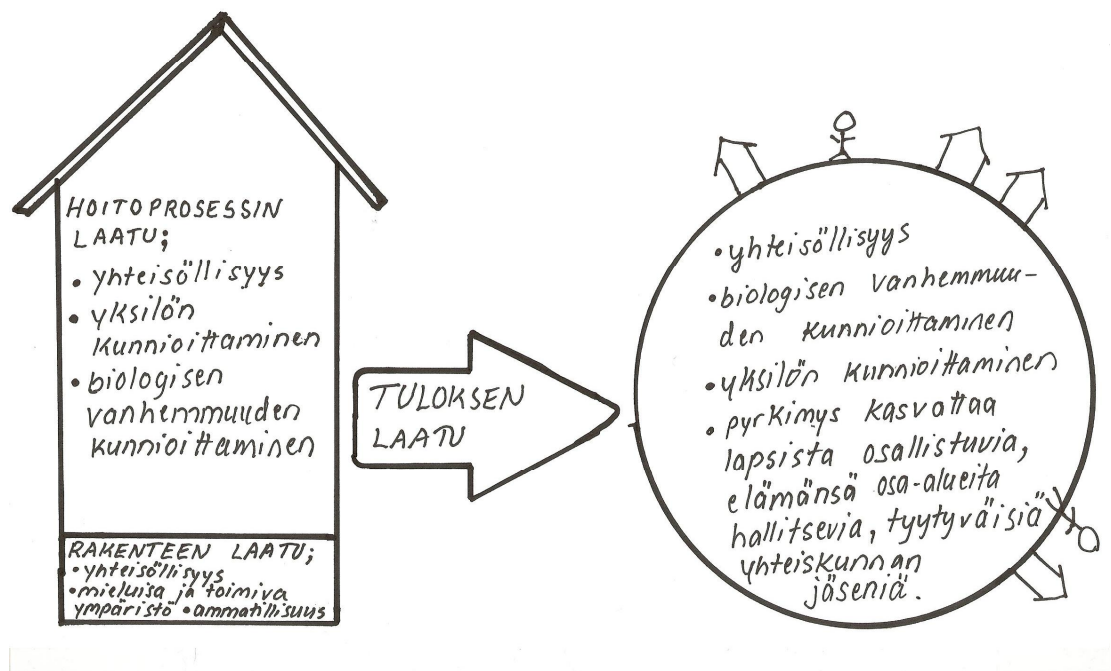 HOITOPROSESSIN
LAATU;
• yhteisöllisyys
• yksilön
kunnioittaminen
• biologisen
vanhemmuuden
kunnioittaminen
RAKENTEEN LAATU;
• yhteisöllisyys
• mieluisa ja toimiva
ympäristö • ammatillisuus
TULOKSEN
LAATU
• yhteisöllisyys
• biologisen vanhemmuu-
den kunnioittaminen
• yksilön kunnioittaminen
• pyrkimys kasvattaa
lapsista osallistuvia,
elämänsä osa-alueita
hallitsevia, tyytyväisiä
yhteiskunnan
jäseniä.